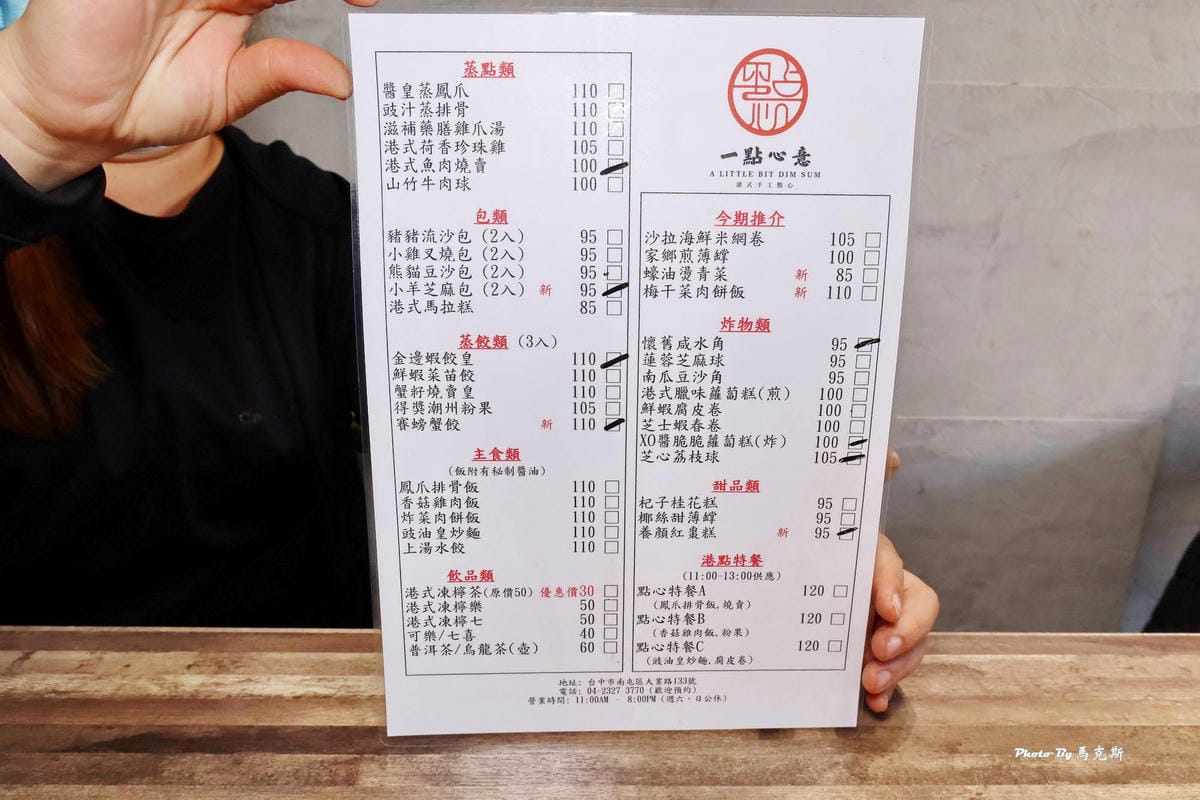 蒸點類
醬皇蒸鳳爪 110
豉汁蒸排骨 110
滋補藥膳雞爪湯 110
港式荷香珍珠雞 105
港式魚肉燒賣 100
山竹牛肉球 100
包類
豬豬流沙包 (2入) 95
小雞叉燒包 (2入) 95
熊貓豆沙包 (2入) 95
小羊芝麻包 (2入) 新 95
港式馬拉糕 85
蒸餃類 (3入)
金邊蝦餃皇 110
鮮蝦菜苗餃 110
蟹籽燒賣皇 110
得獎潮州粉果 105
賽螃蟹餃 新 110
主食類
(飯附有秘制醬油)
鳳爪排骨飯 110
香菇雞肉飯 110
炸菜肉餅飯 110
豉油皇炒麵 110
上湯水餃 110
飲品類
港式凍檸茶(原價50) 優惠價30
港式凍檸樂 50
港式凍檸七 50
可樂/七喜 40
普洱茶/烏龍茶(壺) 60
一點心意
A LITTLE BIT DIM SUM
港式手工點心
今期推介
沙拉海鮮米網卷 105
家鄉煎薄罉 100
蠔油燙青菜 新 85
梅干菜肉餅飯 新 110
炸物類
懷舊咸水角 95
蓮蓉芝麻球 95
南瓜豆沙角 95
港式臘味蘿蔔糕(煎) 100
鮮蝦腐皮卷 100
芝士蝦春卷 100
XO醬脆脆蘿蔔糕(炸) 100
芝心荔枝球 105
甜品類
杞子桂花糕 95
椰絲甜薄罉 95
養顏紅棗糕 新 95
港點特餐
(11:00-13:00供應)
點心特餐A 120
(鳳爪排骨飯,燒賣)
點心特餐B 120
(香菇雞肉飯,粉果)
點心特餐C 120
(豉油皇炒麵,腐皮卷)
地址: 台中市南屯區大業路133號
電話: 04-2327 3770 (歡迎預約)
營業時間: 11:00AM - 8:00PM (週六、日公休)
Photo By 馬克斯